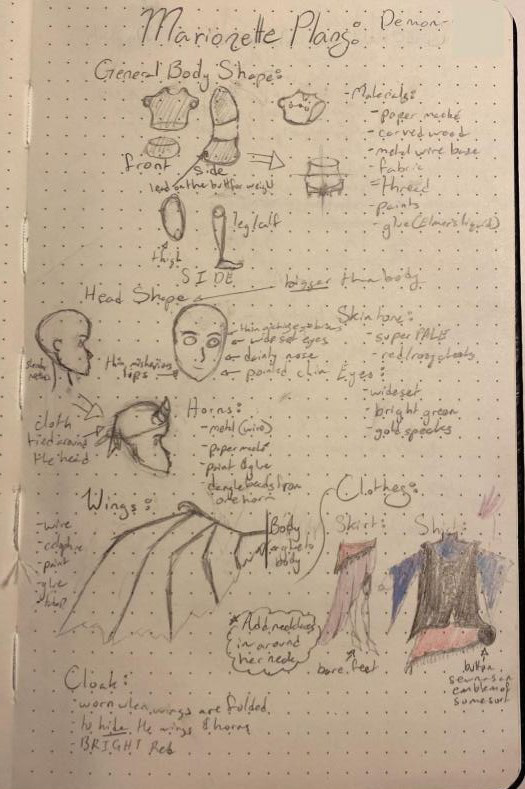 Marionette Plans: Demon-
General Body Shape:
front
side
lead on the butt for weight
thigh
leg/calf
SIDE
- Materials:
- paper maché
- carved wood
- metal wire base
- fabric
- thread
- paints
- glue (Elmer's liquid)
Head Shape
bigger than body
wideset eyes
dainty nose
pointed chin
thin mischievious lips
Skintone:
- super PALE
- red/rosy cheeks
Eyes:
- wideset
- bright green
- gold specks
cloth
tied around
the head
Horns:
- metal (wire)
- paper maché
- paint & glue
- dangle beads from
one horn
Wings:
- wire
- paint
- glue
Body
body
Clothes:
Skirt:
Shirt:
* Add necklaces
in around
her neck
bare feet
button
sewn as an
emblem of
some sort
Cloak:
- worn when wings are folded
- to hide the wings & horns
- BRIGHT Red